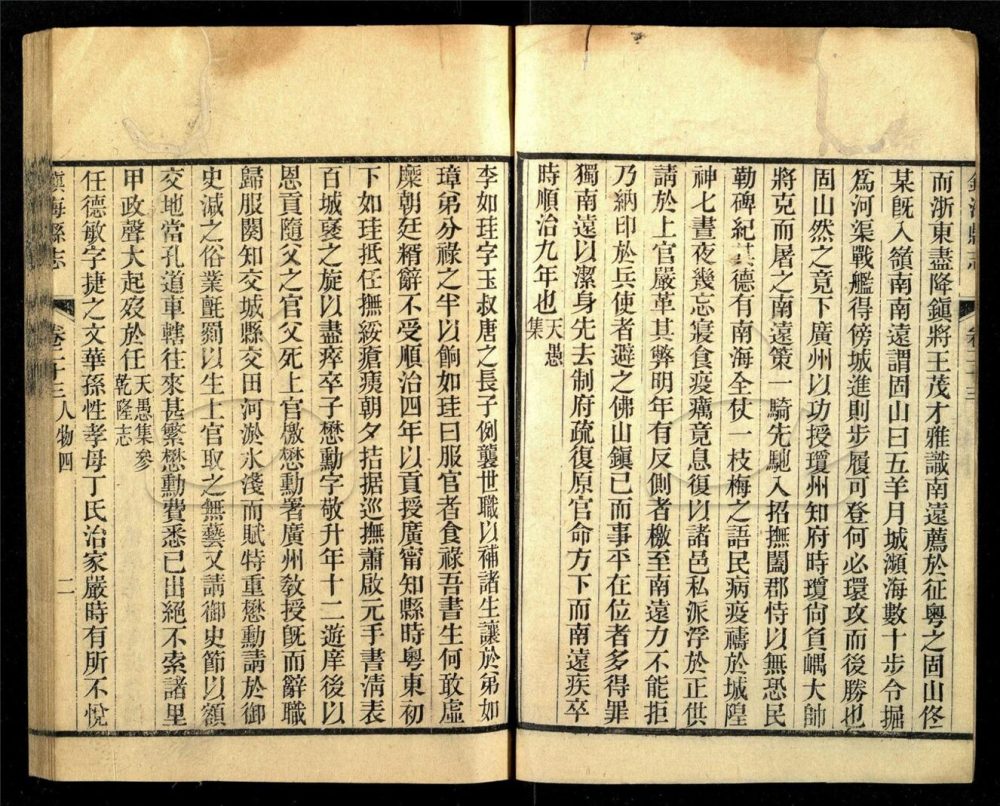 而浙東盡降鎭將王茂才雅識南遠薦於征粵之固山佟
某旣入領南南遠謂固山曰五羊月城瀕海數十步令掘
爲河渠戰艦得傍城進則步履可登何必環攻而後勝也
固山然之竟下廣州以功授瓊州知府時瓊尙負嵎大帥
將克而屠之南遠策一騎先馳入招撫闔郡恃以無恐民
勒碑紀其德有南海全仗一枝梅之語民病疫禱於城隍
神七晝夜幾忘寢食疫癘竟息復以諸邑私派浮於正供
請於上官嚴革其弊明年有反側者檄至南遠力不能拒
乃納印於兵使者避之佛山鎭已而事平在位者多得罪
獨南遠以潔身先去制府疏復原官命方下而南遠疾卒
時順治九年也天愚集
李如珪字玉叔唐之長子例襲世職以補諸生讓於弟如
璋弟分祿之半以餉如珪曰服官者食祿吾書生何敢虛
糜朝廷糈辭不受順治四年以貢授廣甯知縣時粵東初
下如珪抵任撫綏瘡痍朝夕拮据巡撫蕭啟元手書淸表
百城褒之旋以盡瘁卒子懋勳字敬升年十二遊庠後以
恩貢隨父之官父死上官檄懋勳署廣州敎授旣而辭職
歸服闋知交城縣交田河淤水淺而賦特重懋勳請於御
史減之俗業氈罽以生上官取之無藝又請御史節以額
交地當孔道車轄往來甚繁懋勳費悉已出絕不索諸里
甲政聲大起歿於任天愚集參乾隆志
任德敏字捷之文華孫性孝母丁氏治家嚴時有所不悅
鎭海縣志 卷二十三 人物四 二